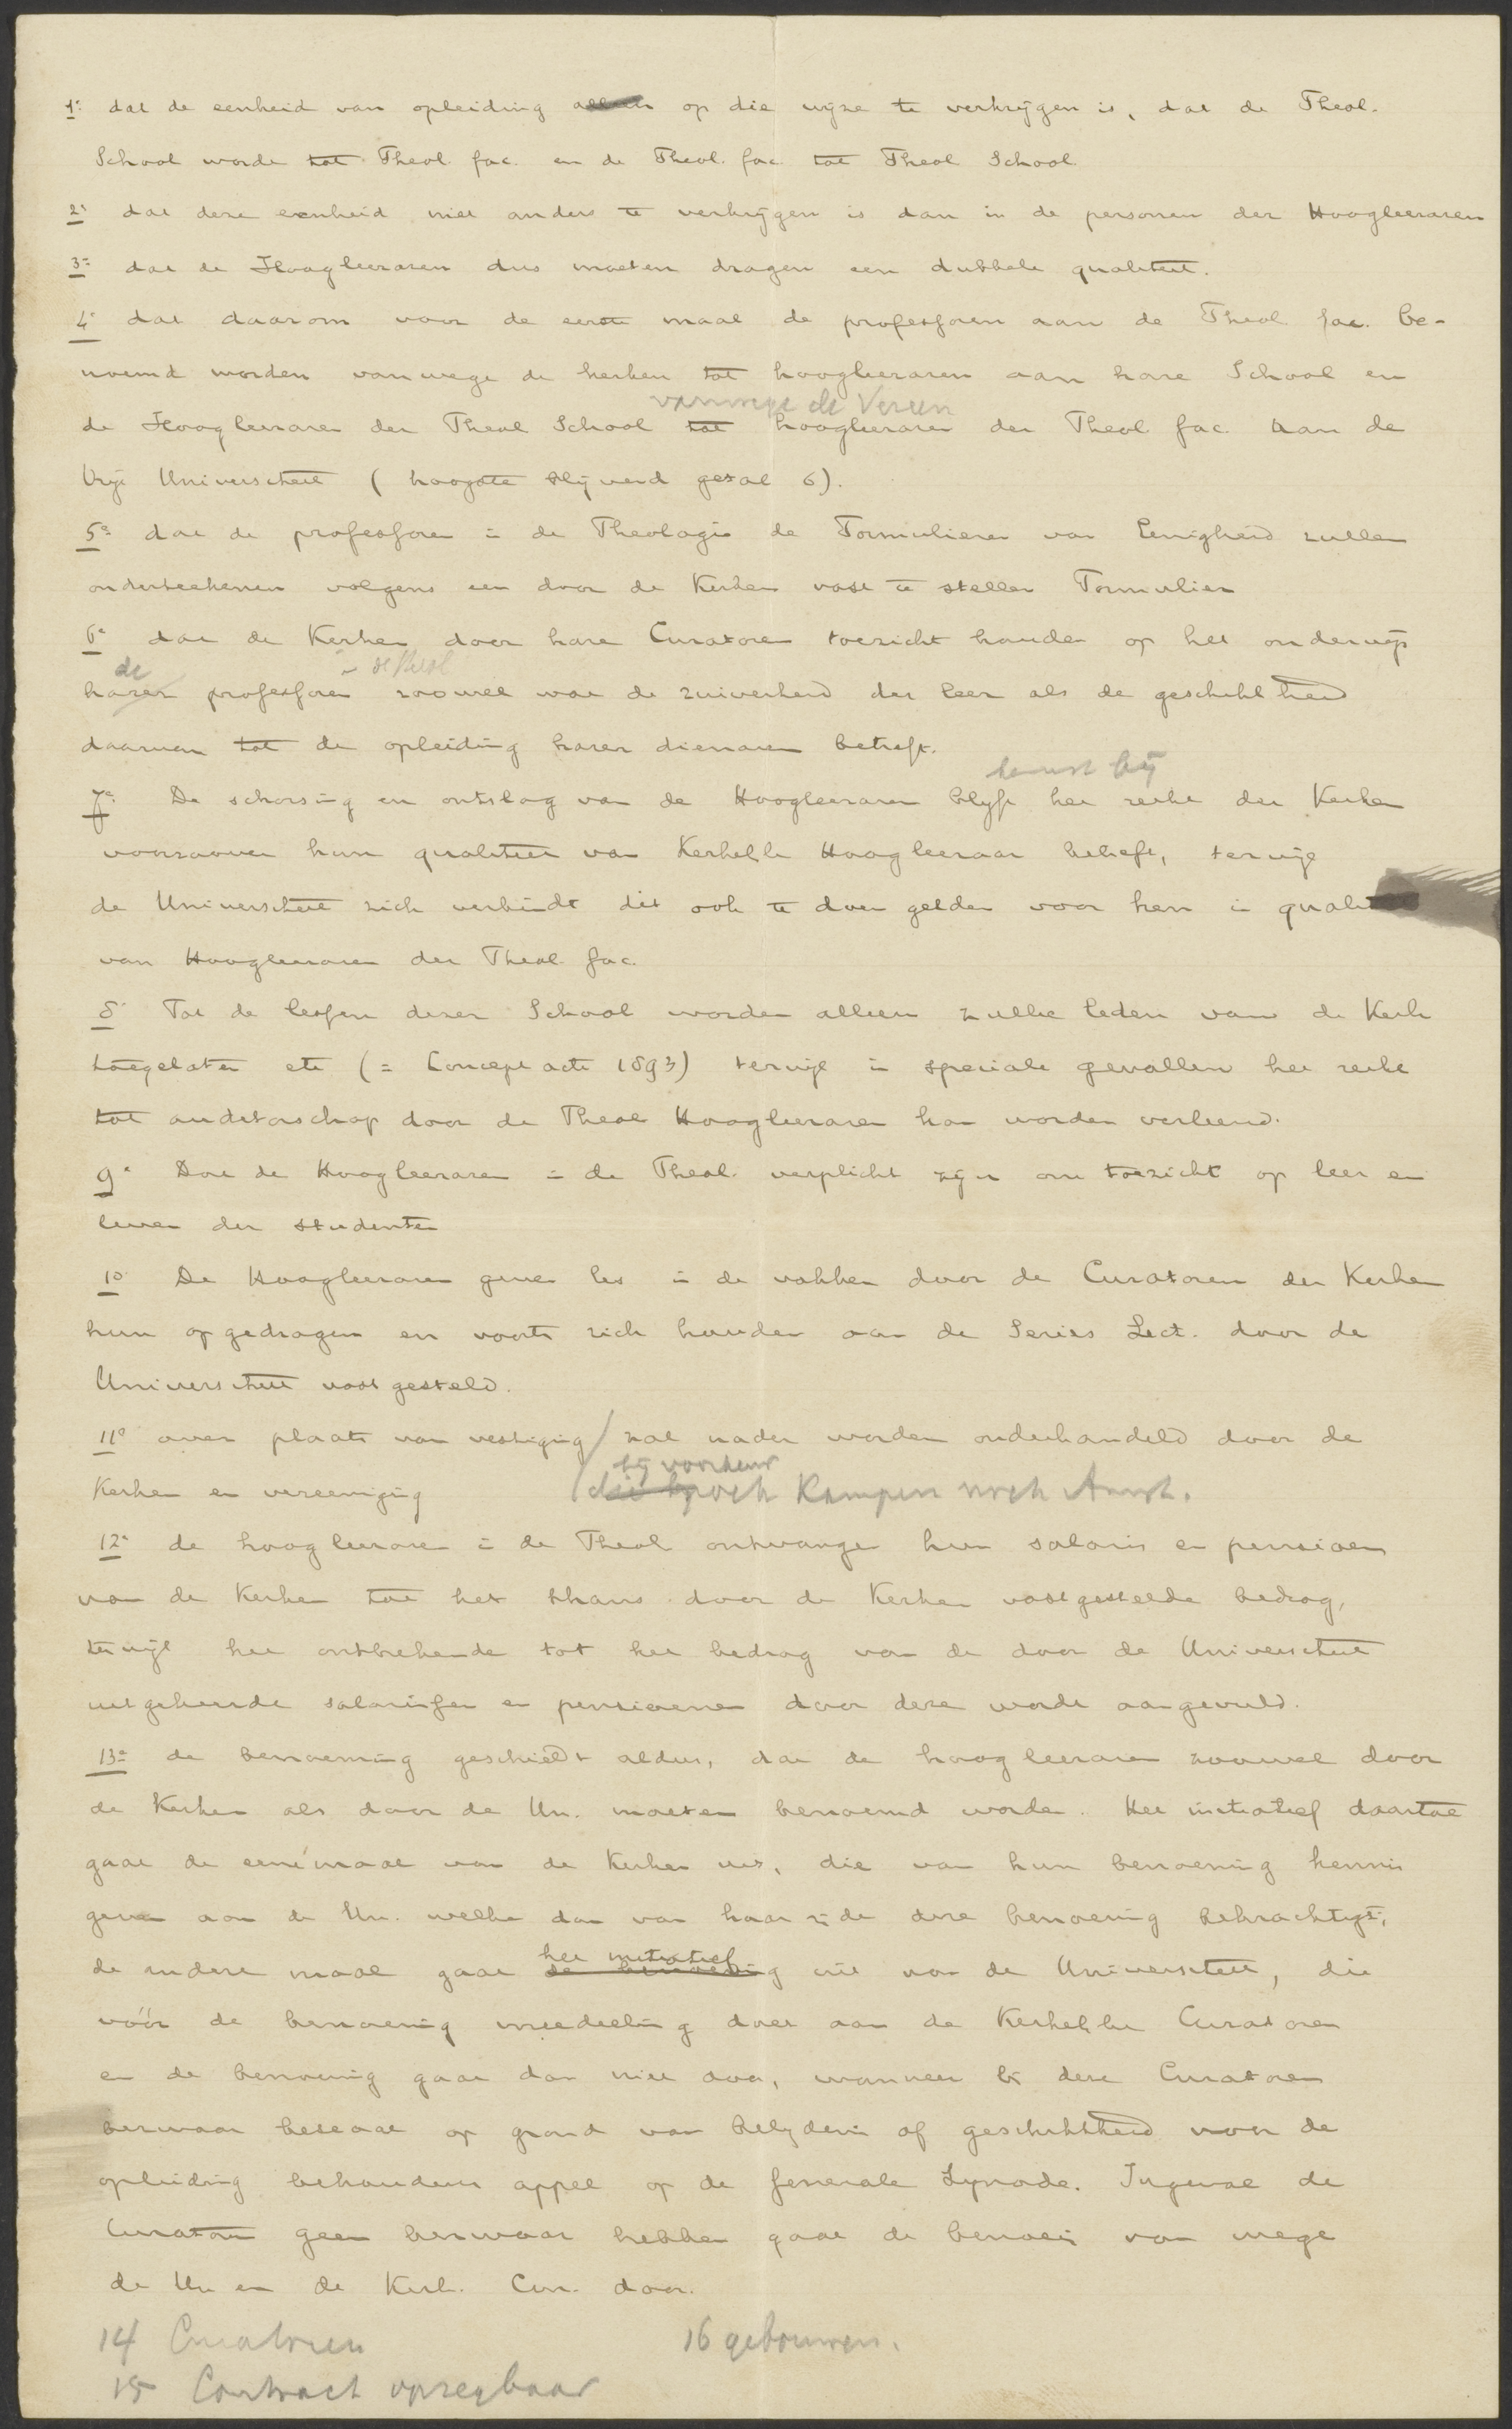 1º dat de eenheid van opleiding alleen op die wijze te verkrijgen is, dat de Theol.
School worde tot Theol. fac. en de Theol. fac. tot Theol School.
2º dat deze eenheid niet anders te verkrijgen is dan in de personen der Hoogleeraren
3º dat de Hoogleeraren dus moeten dragen een dubbele qualiteit.
4º dat daarom voor de eerste maal de professoren aan de Theol. fac. be-
noemd worden vanwege de kerken tot hoogleeraren aan hare School en
vanwege de Vereen
de Hoogleeraren der Theol School tot hoogleeraren der Theol. fac. aan de
Vrije Universiteit (hoogste blijvend getal 6).
5º dat de professoren in de Theologie de Formulieren van Eenigheid zullen
onderteekenen volgens een door de Kerken vast te stellen Formulier
6º dat de Kerken door hare Curatoren toezicht houden op het onderwijs
de in de Theol
harer professoren zoowel wat de zuiverheid der leer als de geschiktheid
daarvan tot de opleiding harer dienaren betreft.
berust bij
7º De schorsing en ontslag van de Hoogleeraren blijft het recht der Kerken
voorzoover hun qualiteit van Kerkelijk Hoogleeraar betreft, terwijl
de Universiteit zich verbindt dit ook te doen gelden voor hen in qualiteit
van Hoogleeraren der Theol. fac.
8º Tot de lessen dezer School worden alleen zulke leden van de Kerk
toegelaten etc (= Concept acte 1893) terwijl in speciale gevallen het recht
tot auditorschap door de Theol Hoogleeraren kan worden verleend.
9º Dat de Hoogleeraren in de Theol. verplicht zijn om toezicht op leer en
leven der studenten
10º De Hoogleeraren geven les in de vakken door de Curatoren der Kerken
hun opgedragen en voorts zich houden aan de Series Lect. door de
Universiteit vastgesteld.
11º over plaats van vestiging / zal nader worden onderhandeld door de
bij voorkeur
Kerken en vereeniging / die noch Kampen noch Amst.
12º de hoogleeraren in de Theol ontvangen hun salaris en pensioen
van de Kerken tot het thans door de Kerken vastgestelde bedrag,
terwijl het ontbrekende tot het bedrag van de door de Universiteit
uitgekeerde salarissen en pensioenen door deze worde aangevuld.
13º de benoeming geschiedt aldus, dat de hoogleeraren zoowel door
de Kerken als door de Un. moeten benoemd worden. Het initiatief daartoe
gaat de eene maal van de Kerken uit, die van hun benoeming kennis
geven aan de Un. welke dan van haar zijde deze benoeming bekrachtigt;
het initiatief
de andere maal gaat de benoeming uit van de Universiteit, die
vóór de benoeming mededeeling doet aan de Kerkelijke Curatoren
en de benoeming gaat dan niet door, wanneer bij deze Curatoren
bezwaar bestaat op grond van belijdenis of geschiktheid voor de
opleiding behoudens appel op de Generale Synode. Ingeval de
Curatoren geen bezwaar hebben gaat de benoem van wege
de Un en de Kerk. Cur. door.
14 Curatoren 16 gebouwen.
15 Contract opzegbaar